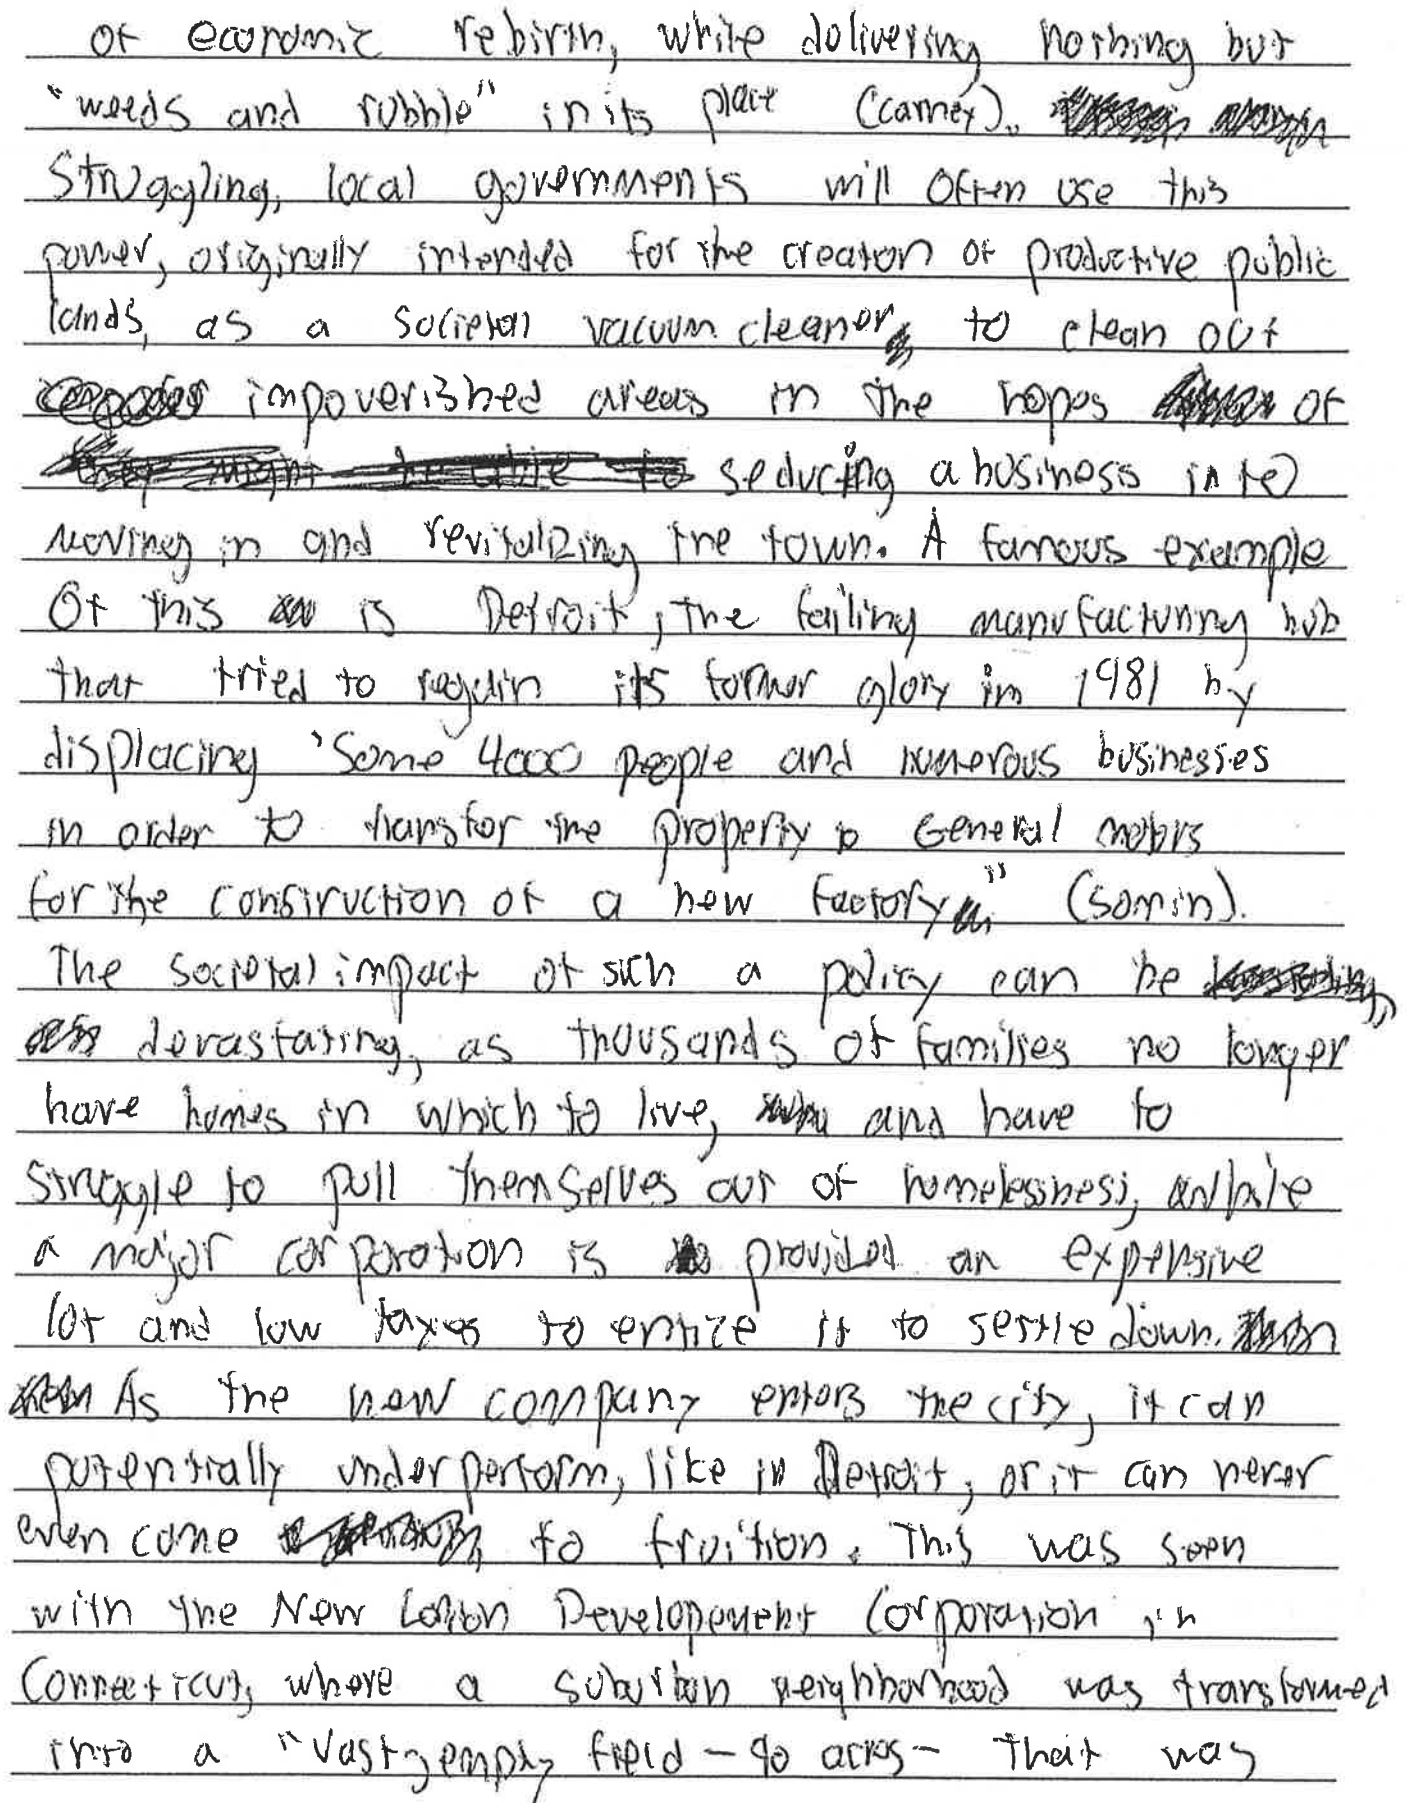 of economic rebirth, while delivering nothing but
"weeds and rubble" in its place (Carney).
Struggling, local governments will often use this
power, originally intended for the creation of productive public
lands, as a societal vacuum cleaner to clean out
impoverished areas in the hopes of
seducing a business into
moving in and revitalizing the town. A famous example
Of this is Detroit, the failing manufacturing hub
that tried to regain its former glory in 1981 by
displacing "Some 4000 people and numerous businesses
in order to transfer the property to General motors
for the construction of a new factory" (Somin).
The societal impact of such a policy can be
devastating, as thousands of families no longer
have homes in which to live, and have to
struggle to pull themselves out of homelessness, while
a major corporation is provided an expensive
lot and low taxes to entice it to settle down.
As the new company enters the city, it can
potentially underperform, like in Detroit, or it can never
even come to fruition. This was seen
with the New London Development Corporation in
Connecticut, where a suburban neighborhood was transformed
into a "vast, empty field - 90 acres - that was